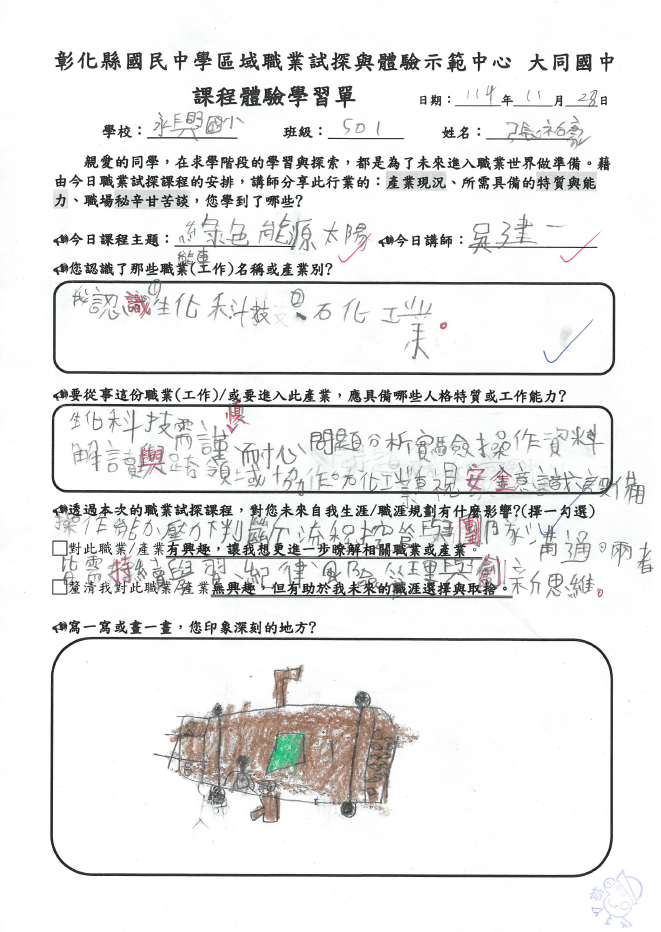 彰化縣國民中學區域職業試探與體驗示範中心 大同國中
課程體驗學習單
日期：114年11月28日
學校：永興國小 班級：501 姓名：張祐豪
親愛的同學，在求學階段的學習與探索，都是為了未來進入職業世界做準備。藉
由今日職業試探課程的安排，講師分享此行業的：產業現況、所需具備的特質與能
力、職場秘辛甘苦談，您學到了哪些？
今日課程主題：綠色能源太陽 今日講師：吳建一
能車
您認識了那些職業(工作)名稱或產業別？
認識①生化科技②石化工業。
要從事這份職業(工作)/或要進入此產業，應具備哪些人格特質或工作能力？
生化科技需謹慎
耐心問題分析實驗操作資料
解讀與跨領域協作。石化工業重視安全意識設備
透過本次的職業試探課程，對您未來自我生涯/職涯規劃有什麼影響？(擇一勾選)
操作能力壓力判斷流程控管與團隊溝通。兩者
□對此職業/產業有興趣，讓我想更進一步瞭解相關職業或產業。
皆需持續學習、風險管理與創新思維。
□釐清我對此職業/產業無興趣，但有助於我未來的職涯選擇與取捨。
寫一寫或畫一畫，您印象深刻的地方？